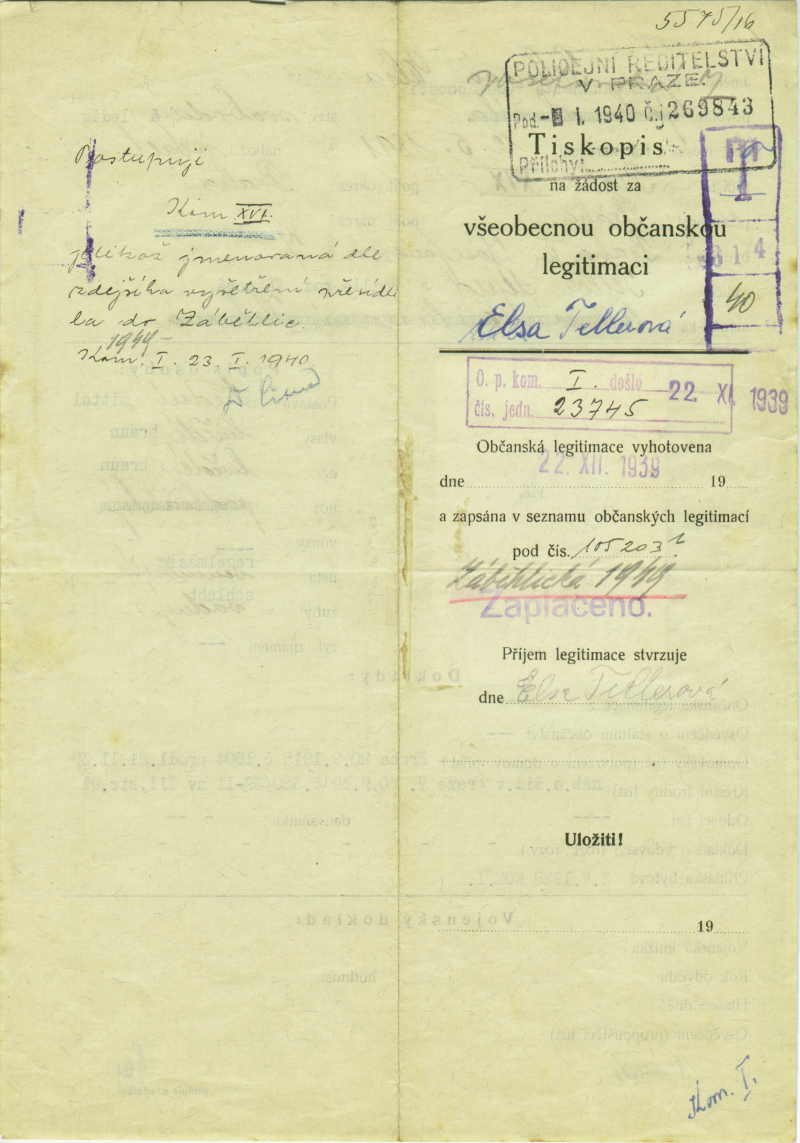 5575/16
POLICEJNÍ ŘEDITELSTVÍ
V PRAZE.
Pod. I. 1940 Č.j 269843
Tiskopis
Přílohy:
na žádost za
všeobecnou občanskou
legitimaci
40
Elsa Tellerová
O. p. kom. I. došlo 22. XI. 1939
čís. jedn. 23745
Občanská legitimace vyhotovena
22. XII. 1939
dne 19
a zapsána v seznamu občanských legitimací
pod čís. 105203
Záběhlická 1949
Zaplaceno.
Příjem legitimace stvrzuje
dne Elsa Tellerová
Uložiti!
19
Kom. I.
Postupuji
Kom XVI.
jelikož jmenovaná dle
zdejšího vyšetření přesídli
la do Záběhlic
1949
Kom. I. 23. I. 1940